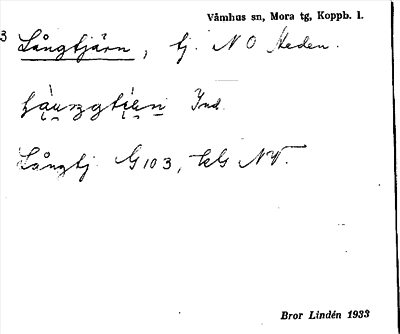 Våmhus sn, Mora tg, Koppb. l.
3
Långtjärn, tj. NO Heden.
Ind.
Långtj G103, kbl NV.
Bror Lindén 1933